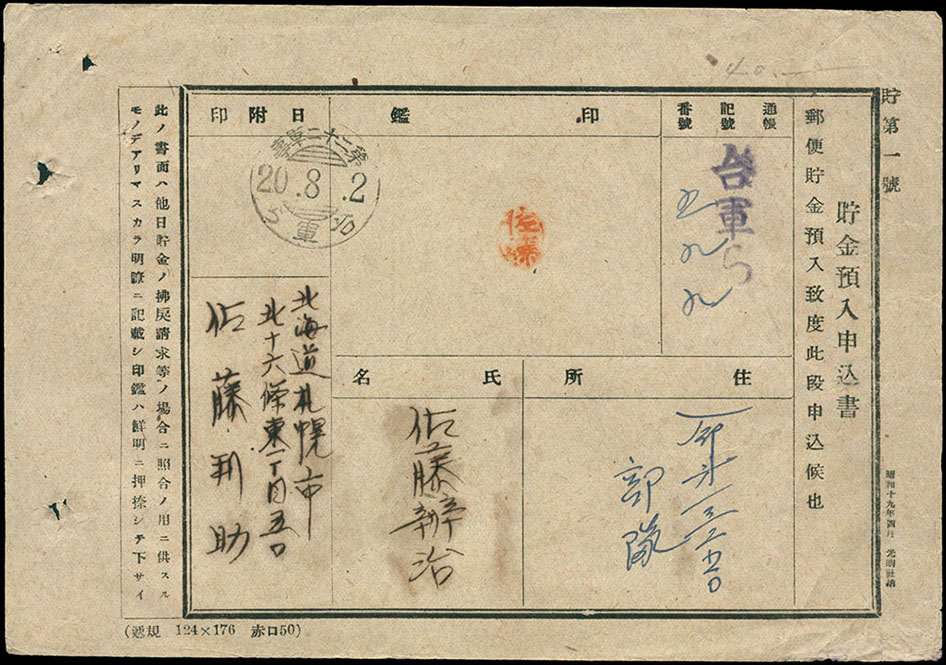 40.—
貯第一號
貯金預入申込書
郵便貯金預入致度此段申込候也
昭和十九年四月 光明社納
通帳
記號
番號
台軍ら
五九九
印鑑
佐藤
日附印
第二十二軍事
20.8.2
台軍ら
住所
部隊
氏名
佐藤辦治
北海道札幌市
北十六條東一丁目五〇
佐藤利助
此ノ書面ハ他日貯金ノ拂戾請求等ノ場合ニ照合ノ用ニ供スル
モノデアリマスカラ明瞭ニ記載シ印鑑ハ鮮明ニ押捺シテ下サイ
(遞規 124×176 赤口50)